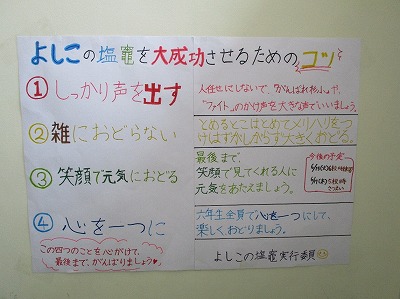 よしこの塩竈を大成功させるためのコツ
①しっかり声を出す
人任せにしないで、「がんばれわっしょい」や、
「ファイト」のかけ声を大きな声でいいましょう。
②雑におどらない
とめるとこはとめてメリハリをつ
けはずかしがらず大きくおどる。
③笑顔で元気におどる
最後まで、
笑顔で見てくれる人に
元気をあたえましょう。
今後の予定
④心を一つに
六年生全員で心を一つにして、
楽しく、おどりましょう。
この四つのことを心がけて、
最後まで、がんばりましょう♥
よしこの塩竈実行委員